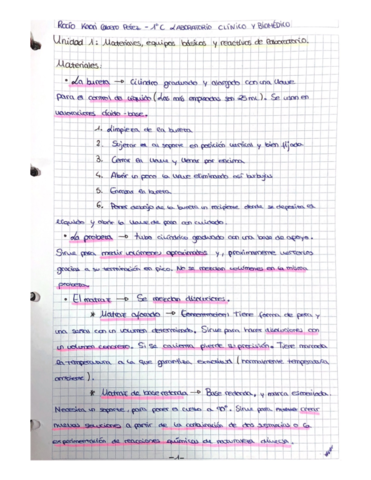 1ºC LABORATORIO CLÍNICO Y BIOMÉDICO.
Unidad 1: Materiales, equipos básicos y reactivos de laboratorio.
Materiales:
• La bureta → Cilindro graduado y alargado con una llave
para el control de líquido (las más empleadas son 25 mL). Se usan en
valoraciones ácido-base.
1. Limpieza de la bureta
2. Sujetar en su soporte en posición vertical y bien fijada
3. Cerrar la llave y llenar por encima
4. Abrir un poco la llave eliminando así burbujas
5. Enrasar la bureta
6. Poner debajo de la bureta un recipiente donde se deposita el
líquido y abrir la llave de paso con cuidado.
• La probeta → tubo cilíndrico graduado con una base de apoyo.
Sirve para medir volúmenes aproximados y, posteriormente verterlos
gracias a su terminación en pico. No se mezclan volúmenes en la misma
probeta.
• El matraz → Se mezclan disoluciones.
* Matraz aforado → Tiene forma de pera y
una señal con un volumen determinado. Sirve para hacer disoluciones con
un volumen concreto. Si se calienta pierde su precisión. Tiene marcada
la temperatura a la que garantiza exactitud (normalmente temperatura
ambiente).
* Matraz de base redonda → Base redonda, y marca esmerilada.
Necesita un soporte, para poner el cuello a 90º. Sirve para crear
nuevas soluciones a partir de la combinación de dos sustancias o la
experimentación de reacciones químicas de naturaleza diversa.
-1-